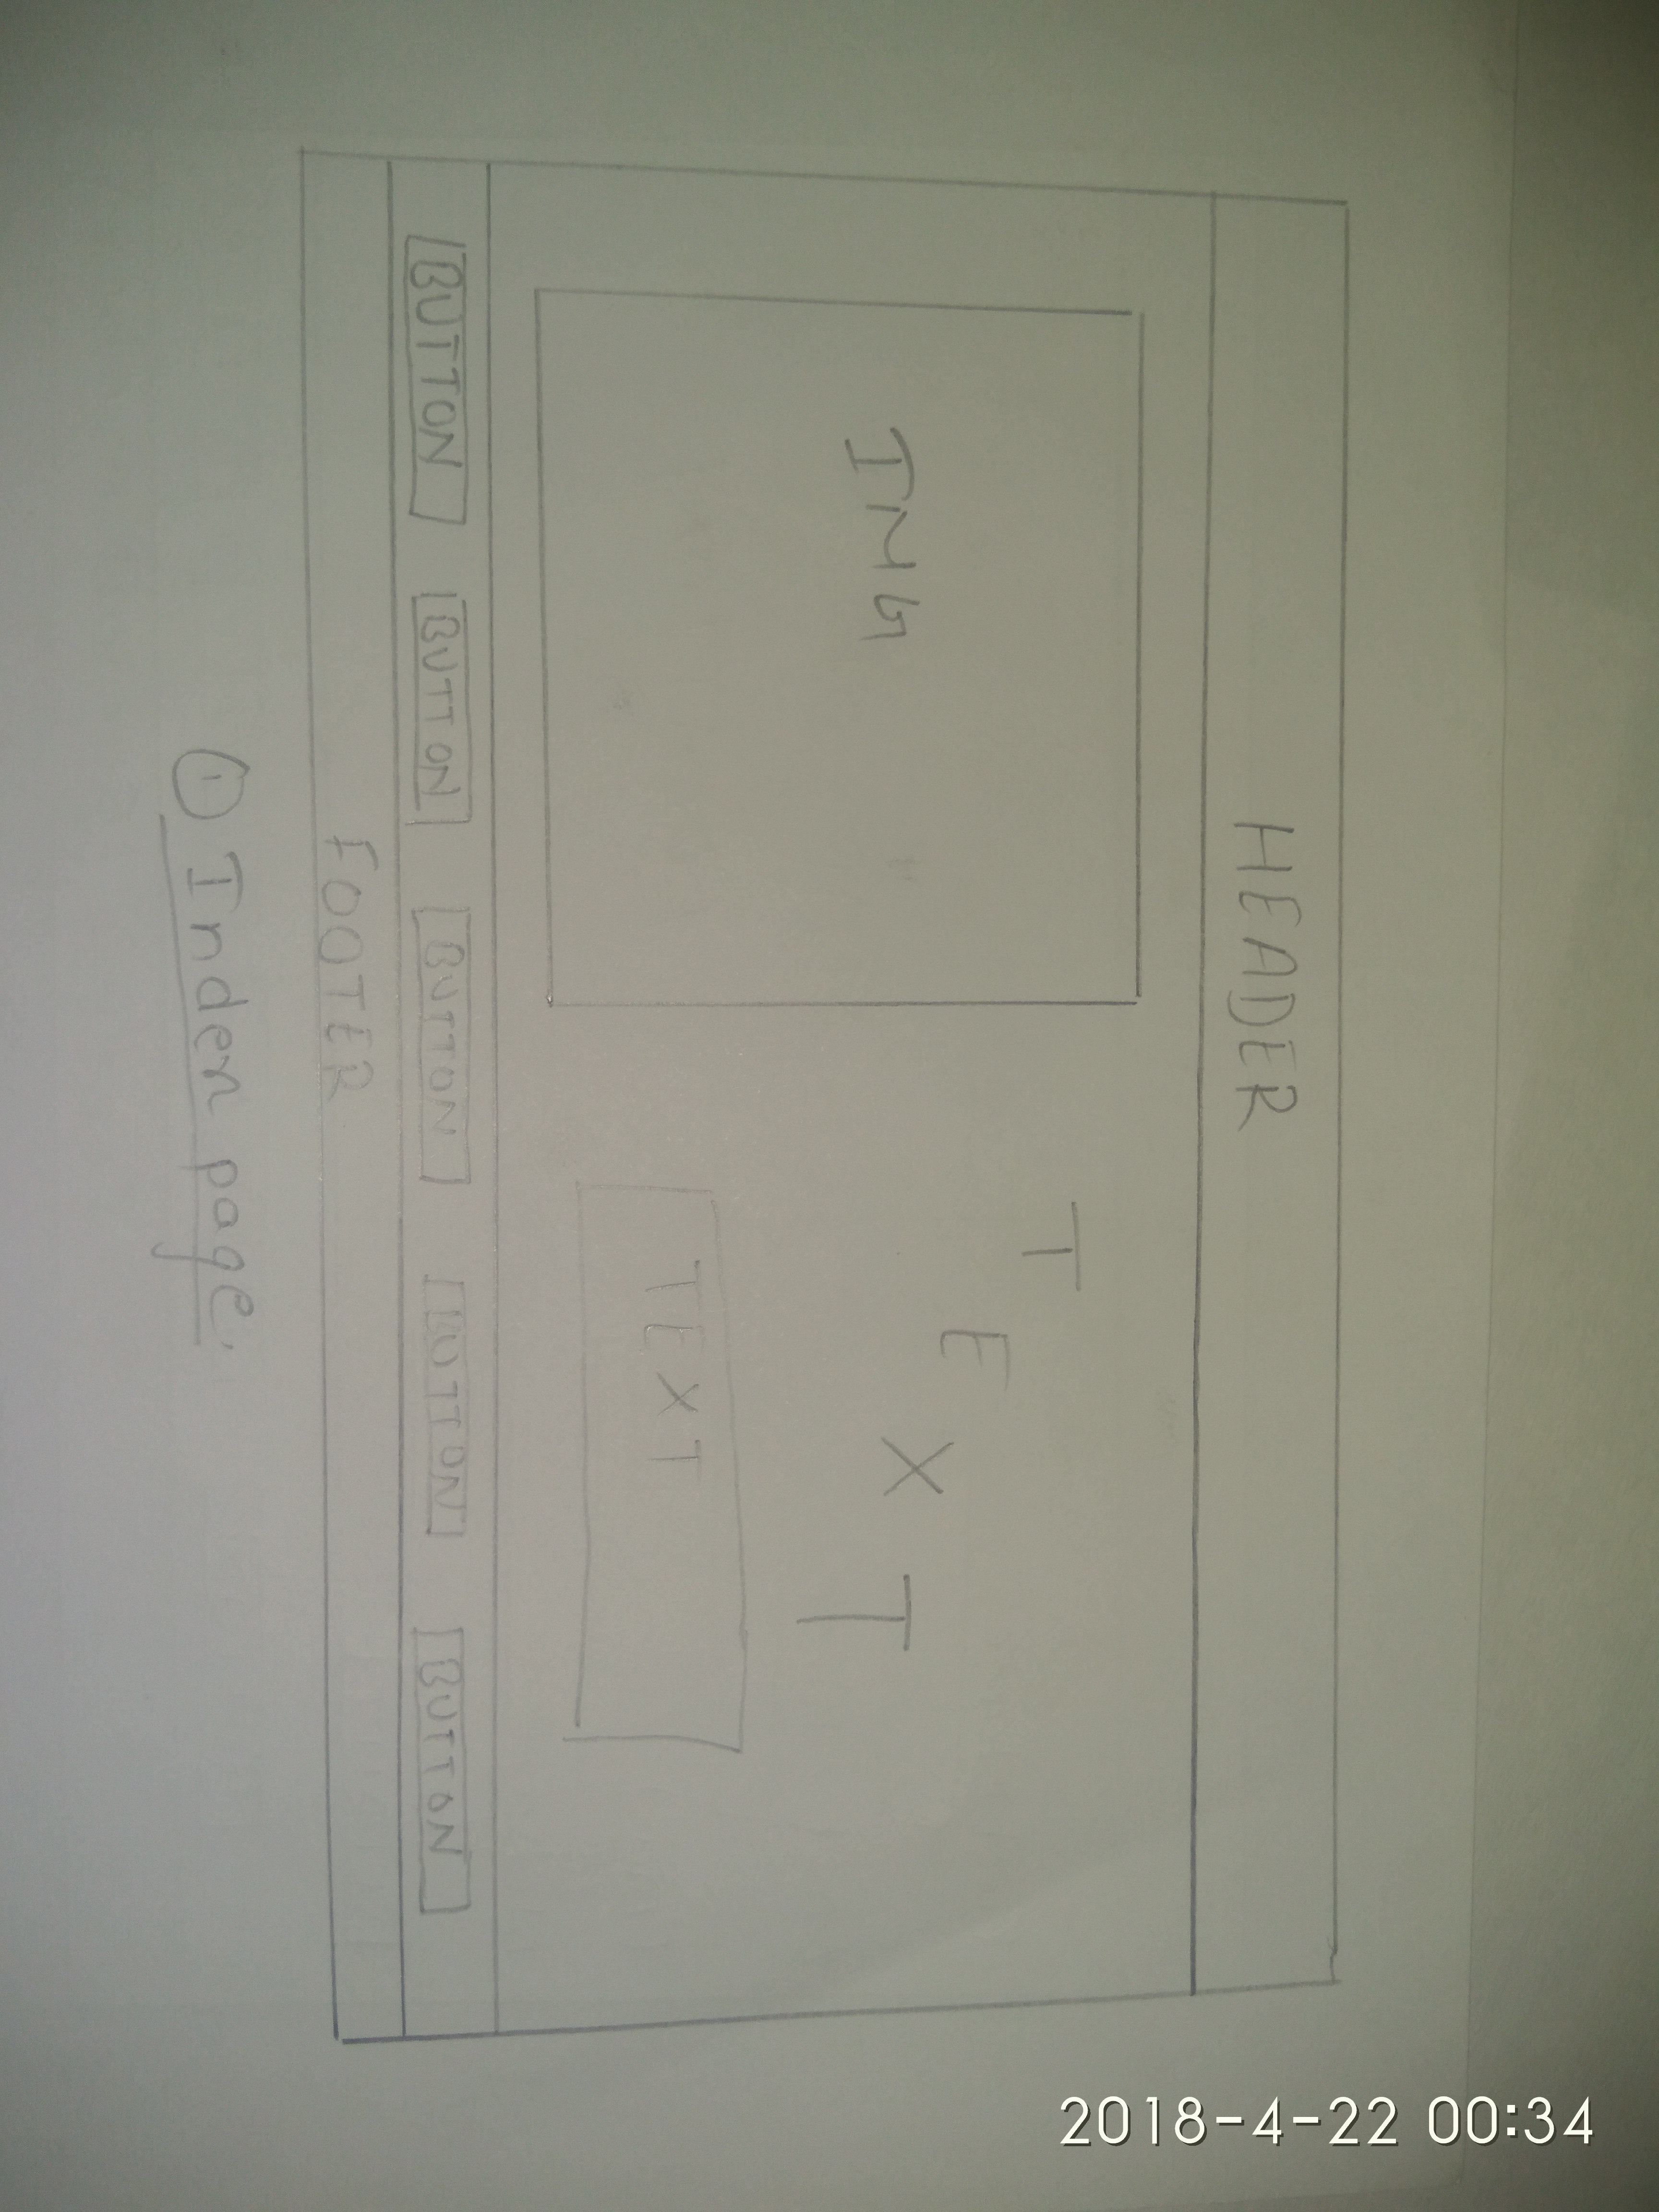 HEADER
IMG
TEXT
TEXT
BUTTON BUTTON BUTTON BUTTON BUTTON
FOOTER
① Index page.
2018-4-22 00:34